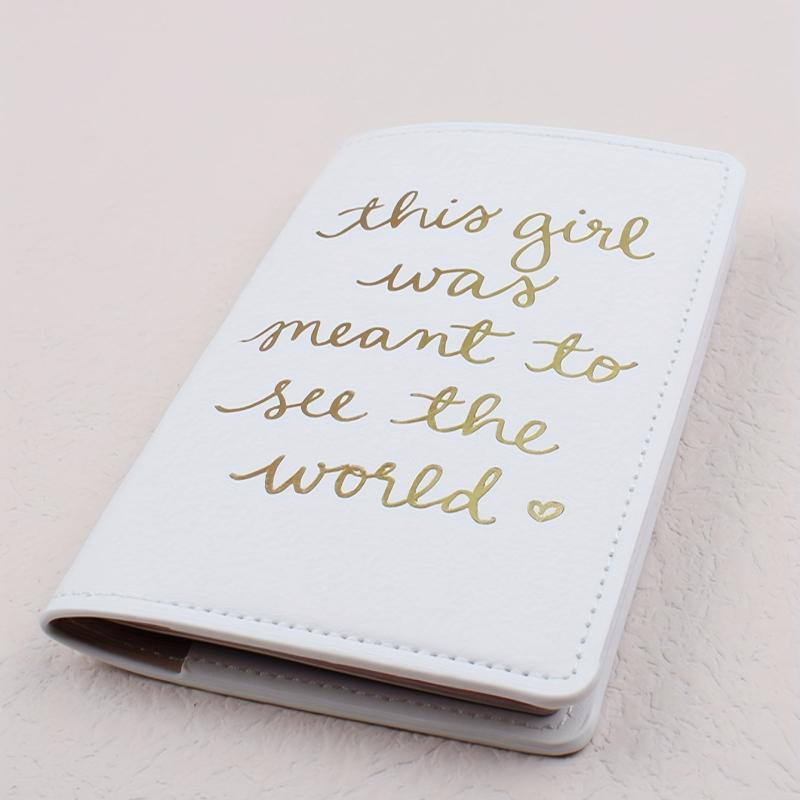 this girl
was
meant to
see the
world ♡